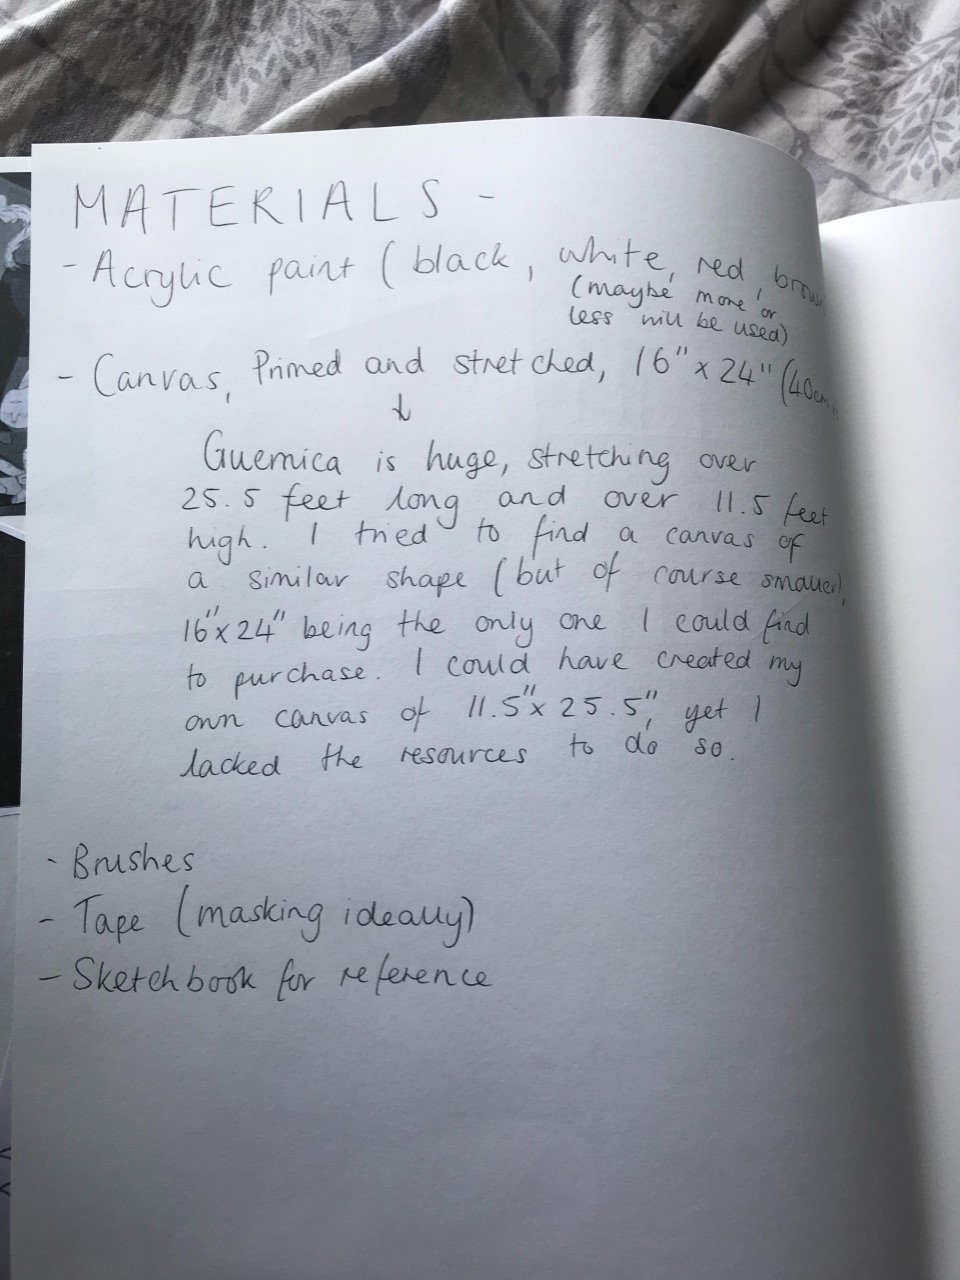 MATERIALS -
- Acrylic paint (black, white, red, brow
(maybe more or
less will be used)
- Canvas, Primed and stretched, 16" x 24" (40cm
↓
Guernica is huge, stretching over
25.5 feet long and over 11.5 feet
high. I tried to find a canvas of
a similar shape (but of course smaller),
16"x 24" being the only one I could find
to purchase. I could have created my
own canvas of 11.5"x 25.5", yet I
lacked the resources to do so.
- Brushes
- Tape (masking ideally)
- Sketchbook for reference